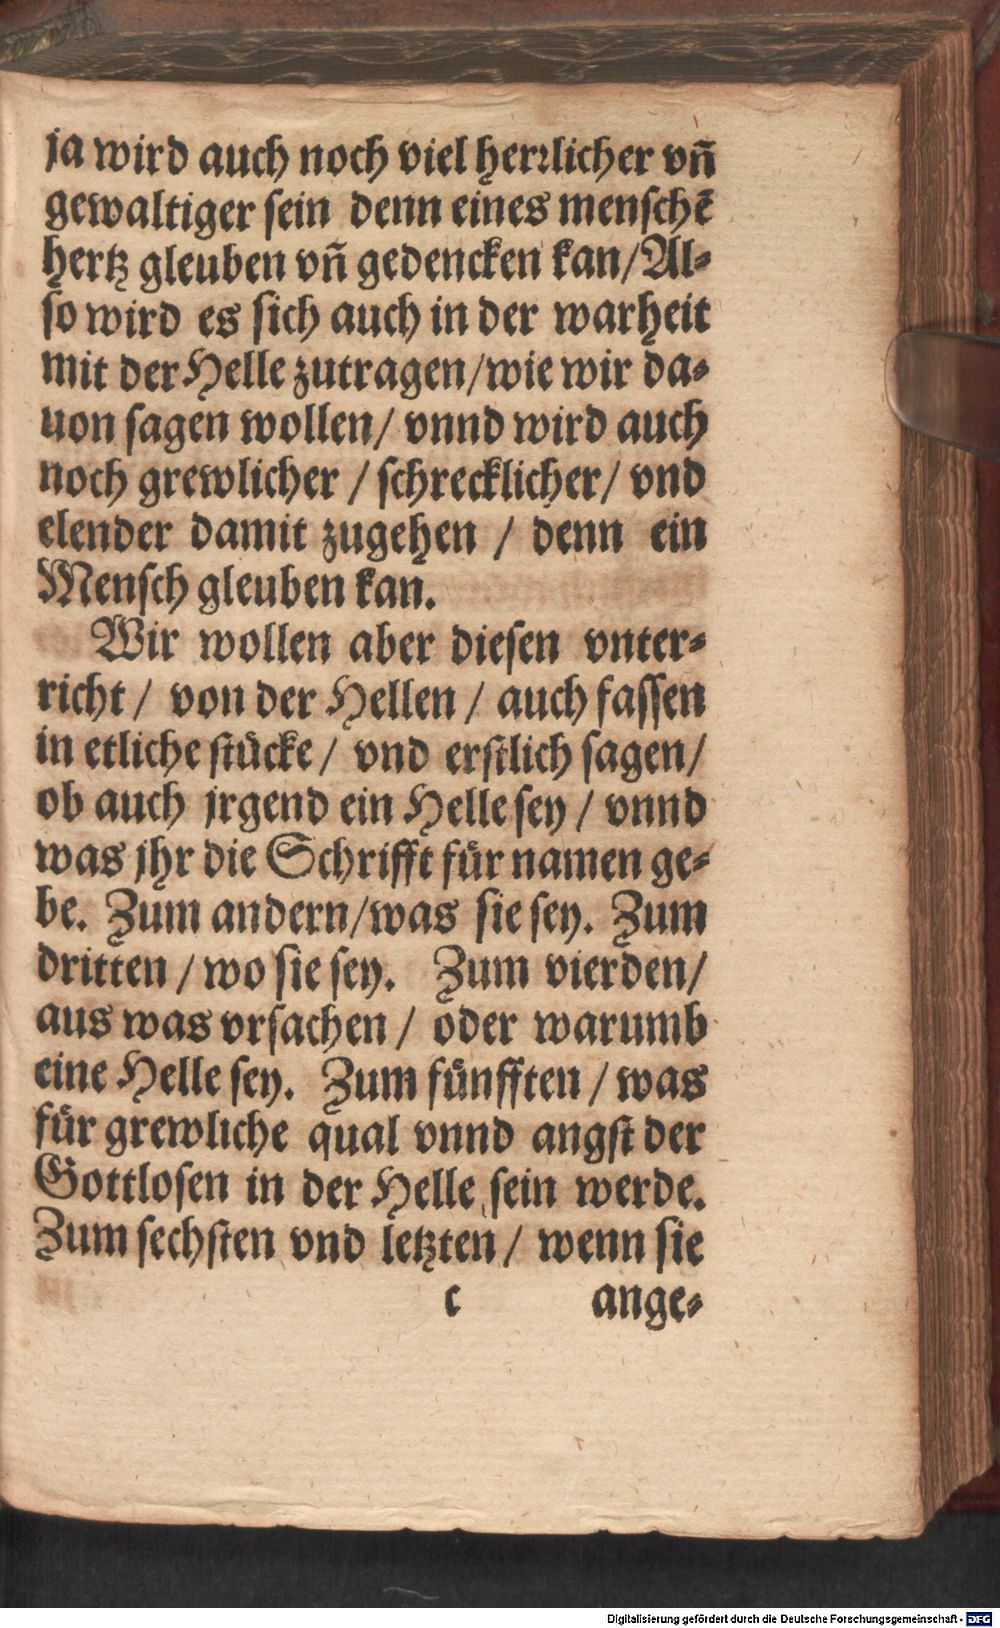 ja wird auch noch viel herꝛlicher vñ
gewaltiger sein denn eines menschẽ
hertz gleuben vñ gedencken kan/Al-
so wird es sich auch in der warheit
mit der Helle zutragen/wie wir da-
uon sagen wollen/ vnnd wird auch
noch grewlicher / schrecklicher/ vnd
elender damit zugehen / denn ein
Mensch gleuben kan.
Wir wollen aber diesen vnter-
richt / von der Hellen / auch fassen
in etliche stücke / vnd erstlich sagen/
ob auch jrgend ein Helle sey / vnnd
was jhr die Schrifft für namen ge-
be. Zum andern/was sie sey. Zum
dritten / wo sie sey. Zum vierden/
aus was vrsachen / oder warumb
eine Helle sey. Zum fünfften / was
für grewliche qual vnnd angst der
Gottlosen in der Helle sein werde.
Zum sechsten vnd letzten / wenn sie
c ange-
Digitalisierung gefördert durch die Deutsche Forschungsgemeinschaft - DFG